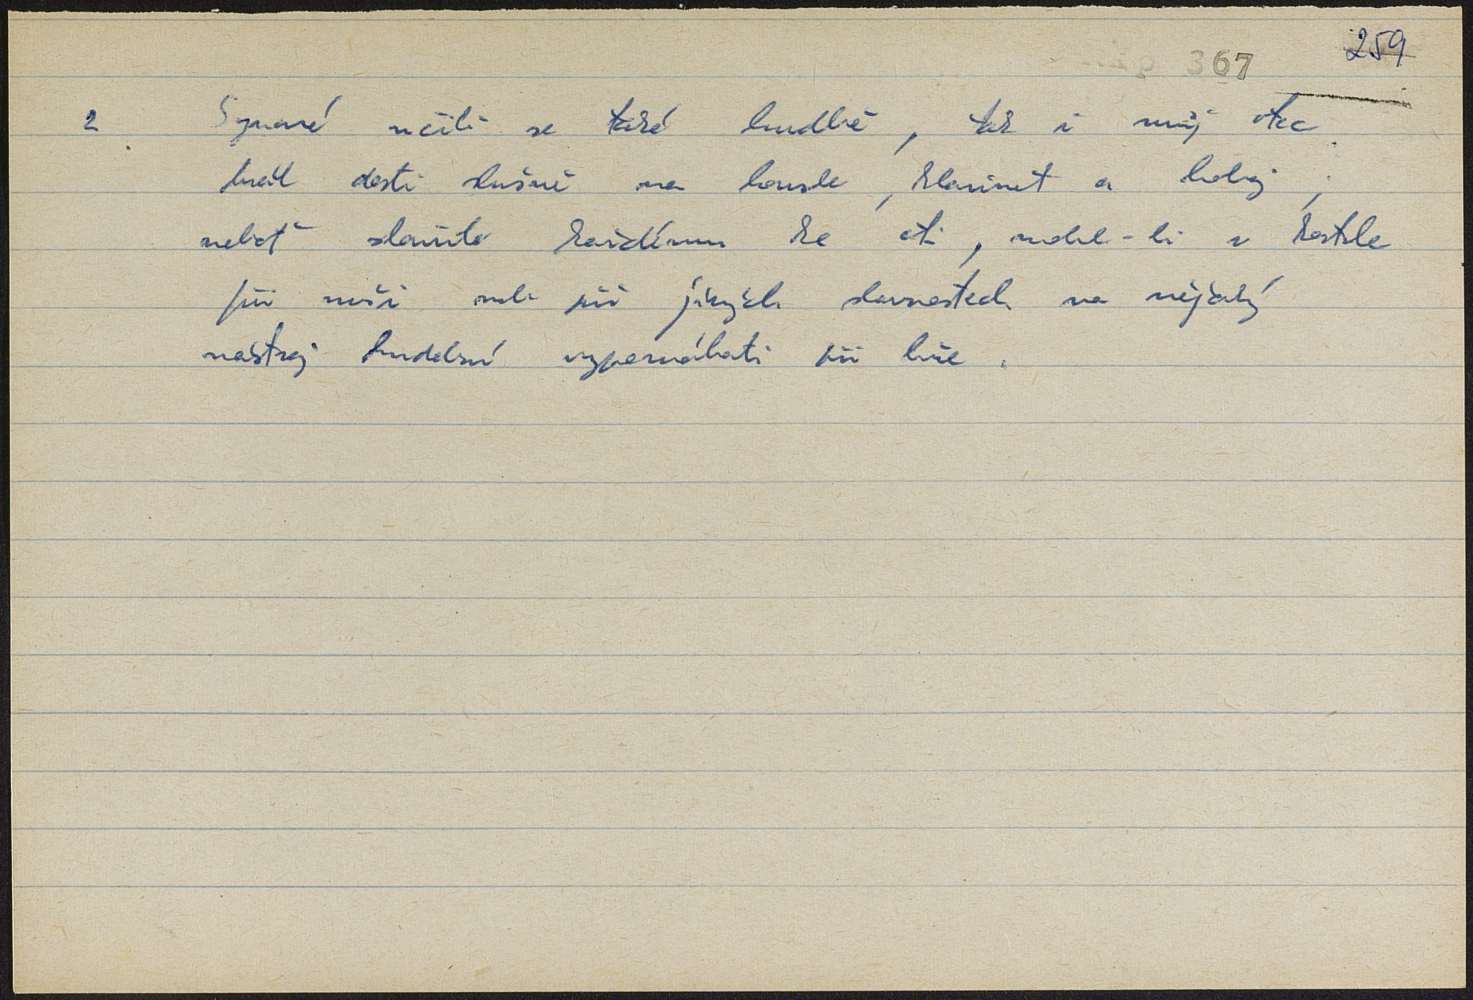 259
367
2 Synové učili se také hudbě, tak i můj otec
hrál dosti slušně na housle, klarinet a hoboj;
neboť sloužilo každému ke cti, mohl-li v kostele
při mši neb při jiných slavnostech na nějaký
nástroj hudební vypomáhati při kůře.